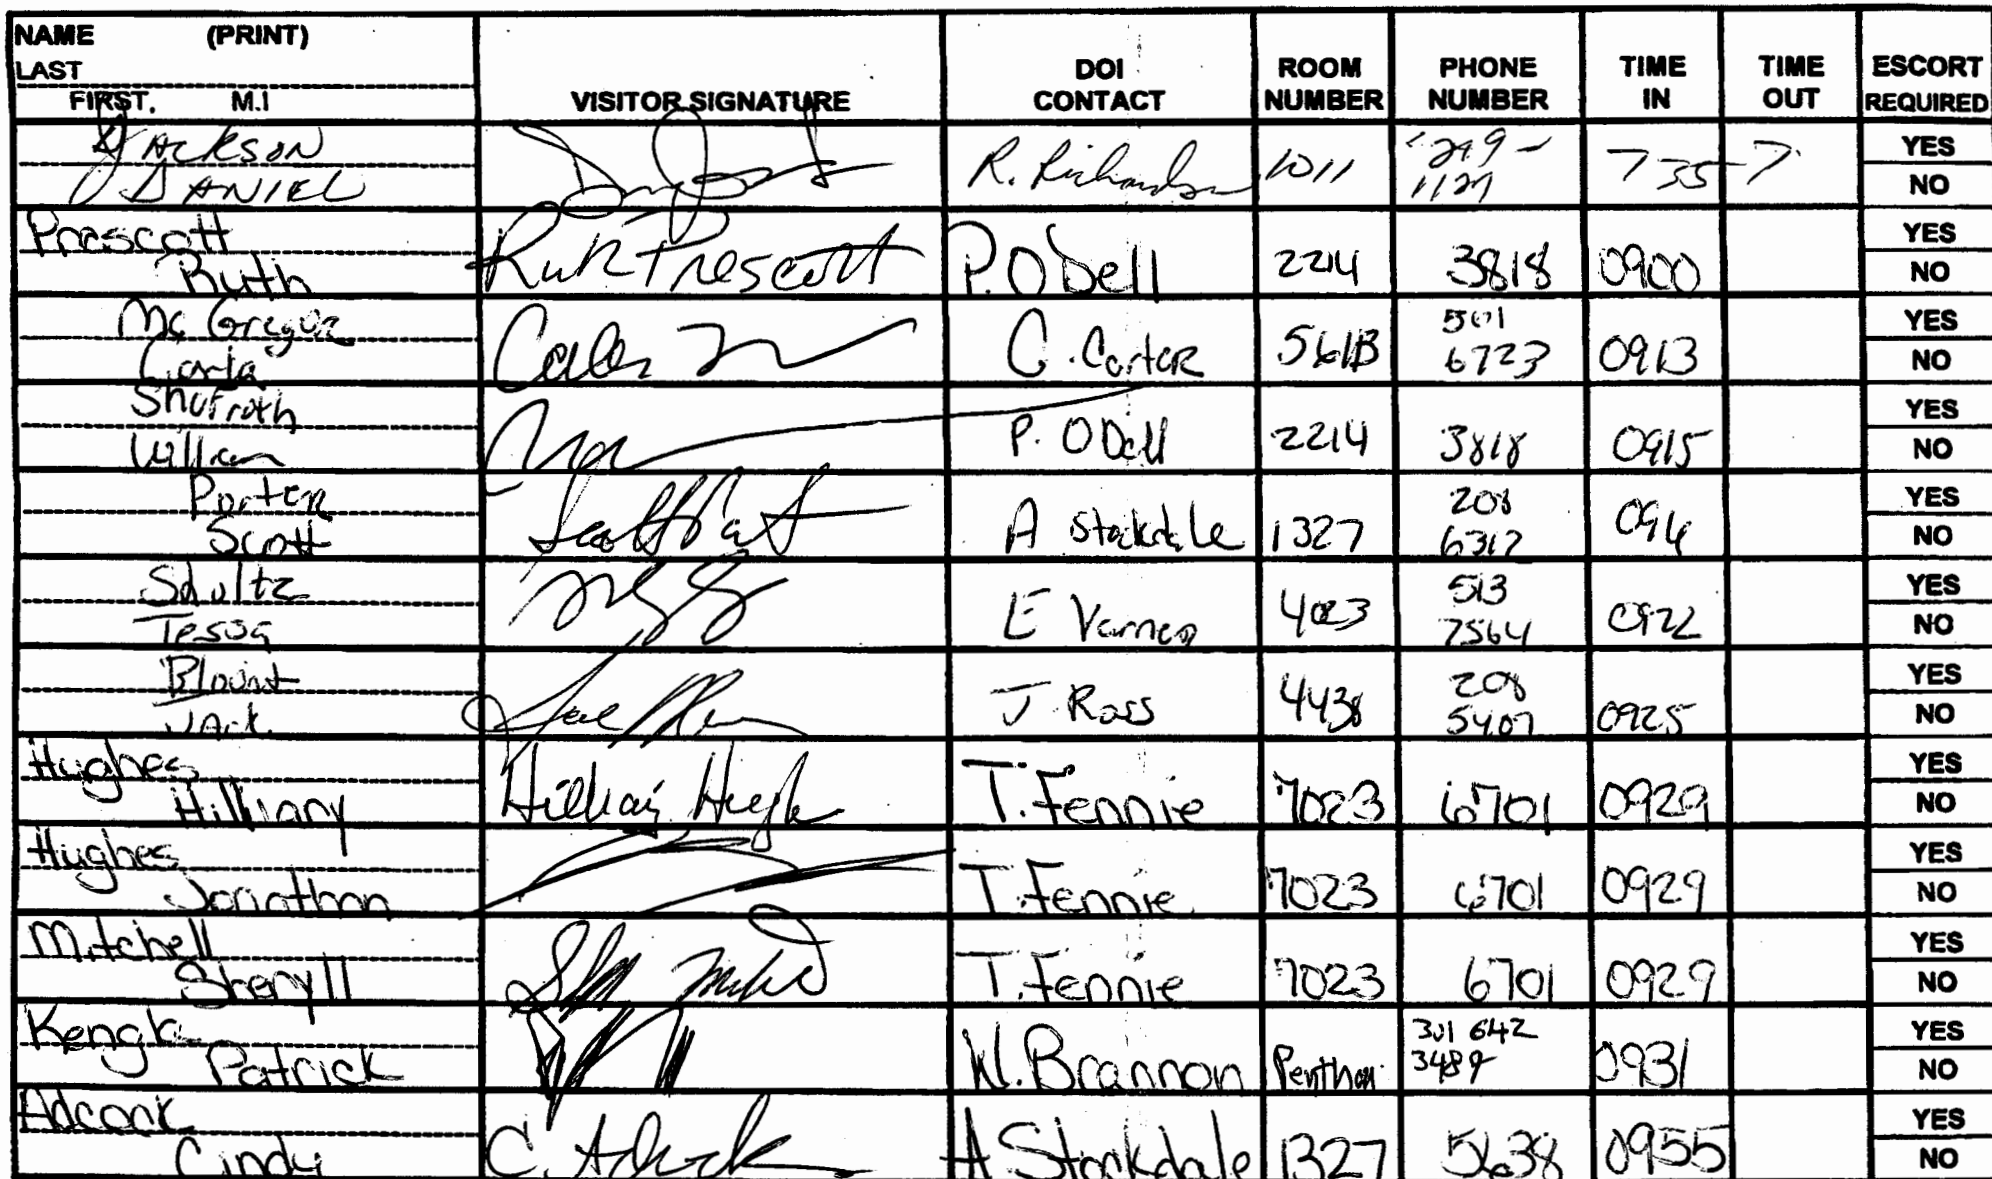 NAME (PRINT)
LAST
FIRST, M.I
VISITOR SIGNATURE
DOI
CONTACT
ROOM
NUMBER
PHONE
NUMBER
TIME
IN
TIME
OUT
ESCORT
REQUIRED
JACKSON
DANIEL
R. Richardson
1011
735
YES
NO
Prescott
Ruth
Ruth Prescott
P. O Dell
2214
3818
0900
YES
NO
Mc Gregor
Carla
C. Carter
561B
501
6723
0913
YES
NO
Shafroth
William
P. O Dell
2214
3818
0915
YES
NO
Porter
Scott
A Stockdale
1327
208
6317
YES
NO
Schultz
E Varner
4023
513
7564
0922
YES
NO
Blount
Jack
J Ross
4438
208
5407
0925
YES
NO
Hughes
Hillary
T. Fennie
7023
6701
0929
YES
NO
Hughes
Jonathon
T. Fennie
7023
6701
0929
YES
NO
Mitchell
Sheryll
T. Fennie
7023
6701
0929
YES
NO
Kengla
Patrick
W. Brannon
301 642
3489
0931
YES
NO
Adcock
Cindy
C. Adcock
A Stockdale
1327
5638
0955
YES
NO